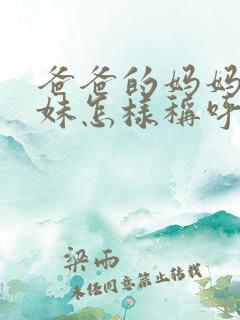 爸爸的妈妈
妹怎样稱呼
梁雨
未经同意禁止转载